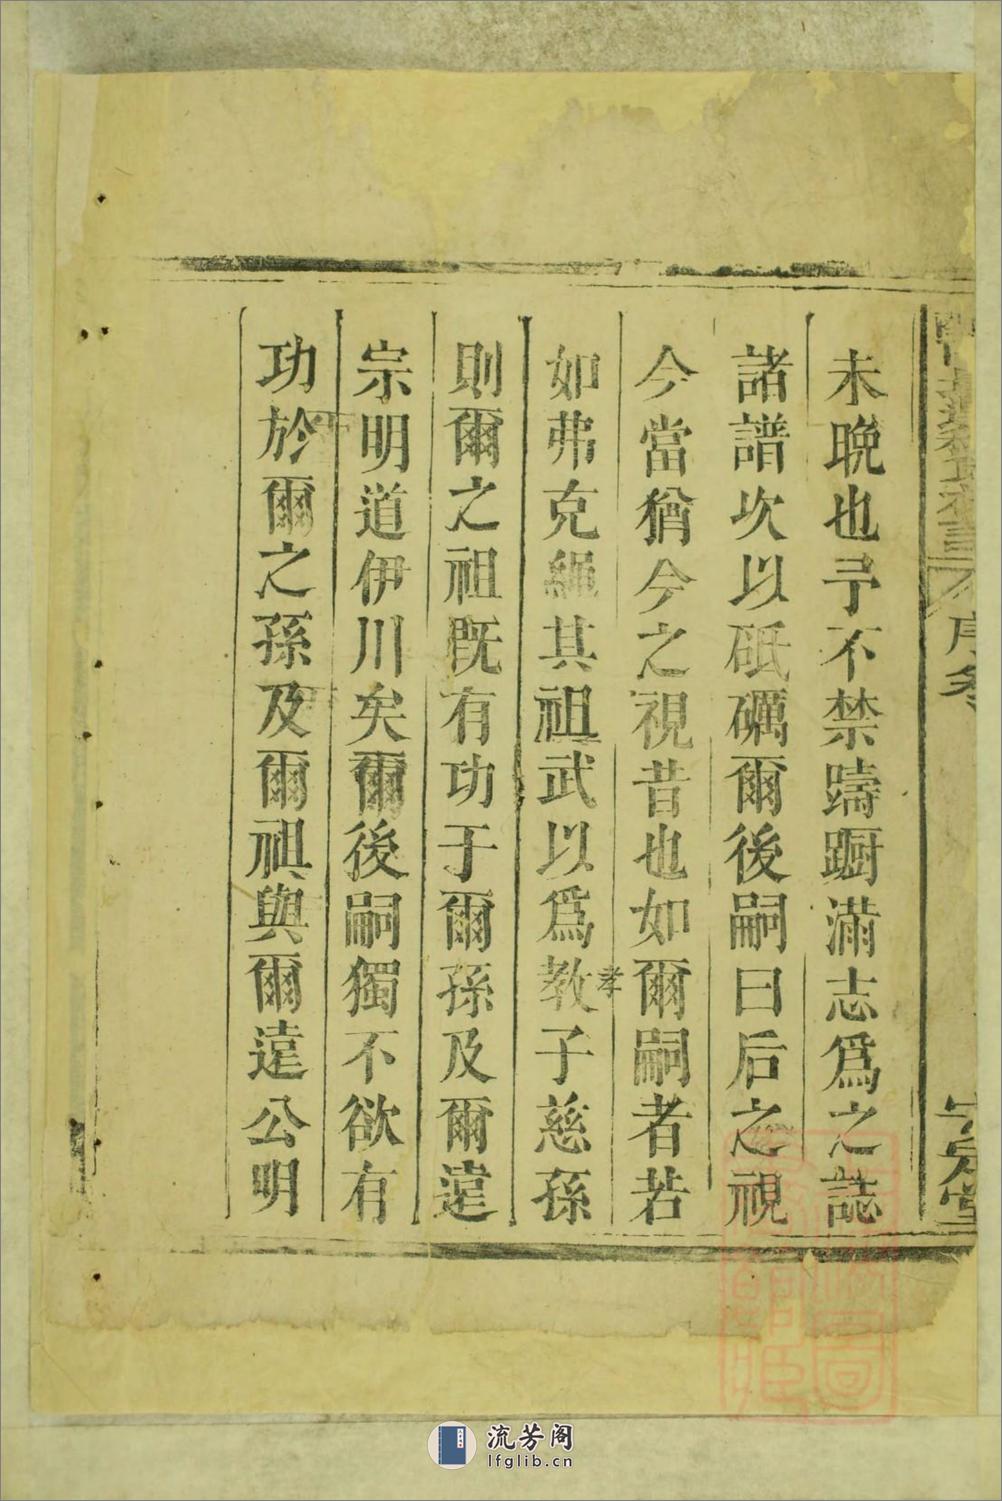 未晚也予不禁躊蹰滿志爲之誌
諸譜次以砥礪爾後嗣曰后之視
今當猶今之視昔也如爾嗣者若
如弗克繩其祖武以爲教子慈孫
孝
則爾之祖既有功于爾孫及爾遠
宗明道伊川矣爾後嗣獨不欲有
功於爾之孫及爾祖與爾遠公明
流芳阁
lfglib.cn